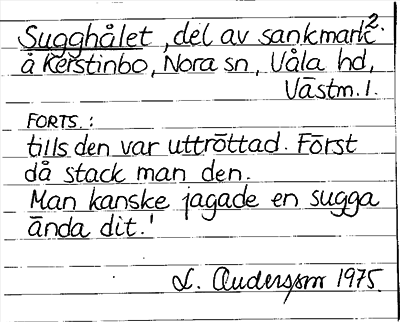 Sugghålet, del av sankmark 2.
å Kerstinbo, Nora sn, Våla hd,
Västm. l.
FORTS.:
tills den var uttröttad. Först
då stack man den.
Man kanske jagade en sugga
ända dit.!
L. Andersson 1975.